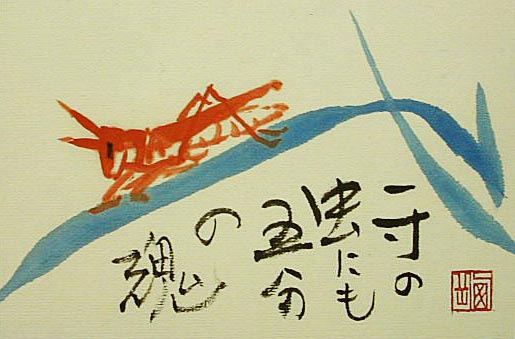 一寸の
虫にも
五分
の
魂